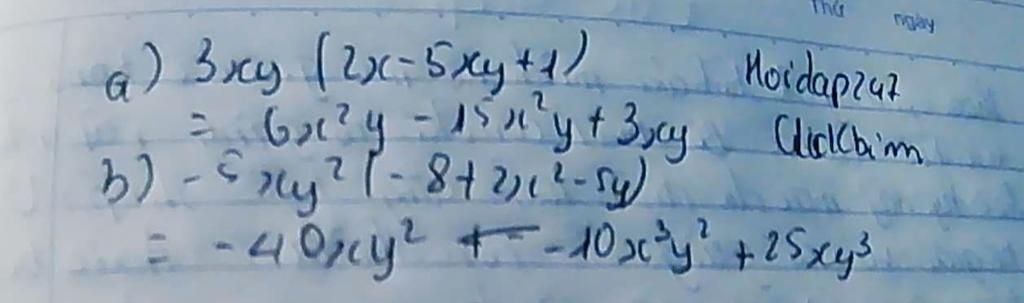 Thứ ngày
a) 3xy (2x-5xy+1) Hoidap247
= 6x²y - 15x²y + 3xy
b) -5xy² (-8+2x²-5y)
= -40xy² + -10x³y² + 25xy³